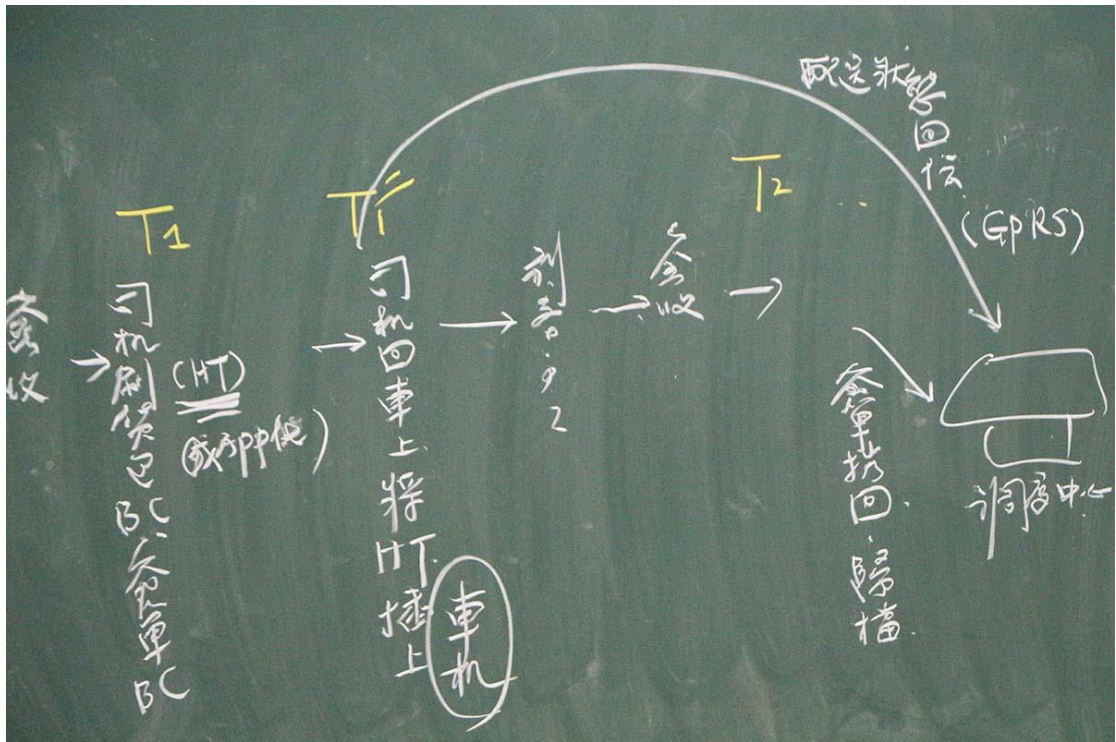 簽收
T1
司机刷貨包BC、簽單BC
(HT)
(或App化)
T1"
司机回車上將HT插上
車机
到季节.9.2
簽收
T2
配送狀態回信
(GPRS)
簽單拐回、歸檔
調度中心